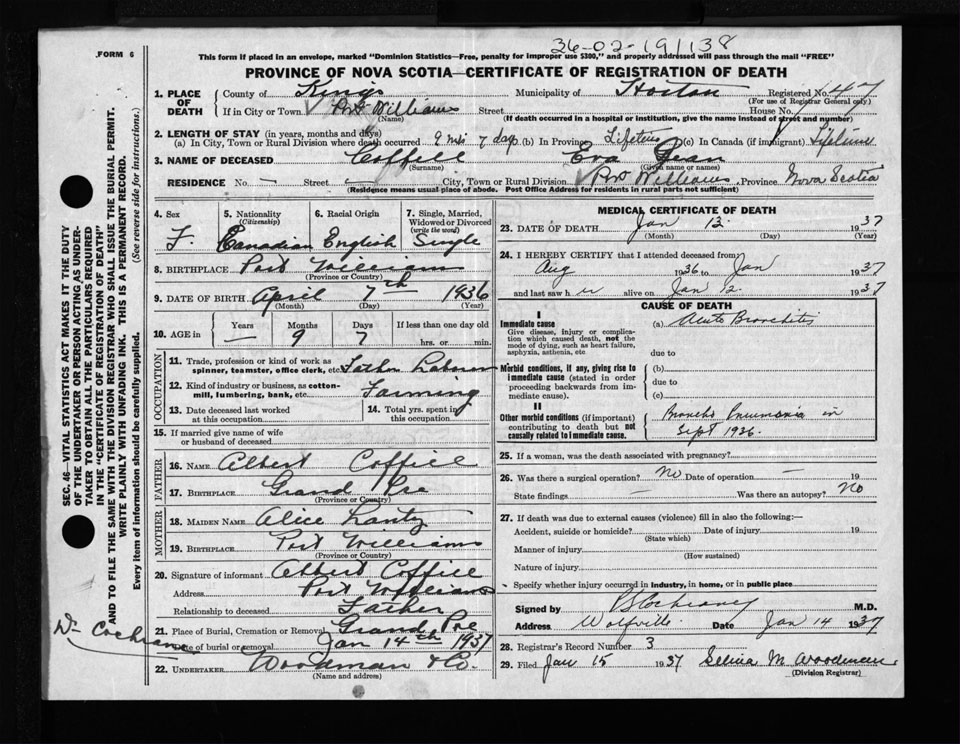 FORM 6
36-02-19/138
This form if placed in an envelope, marked "Dominion Statistics—Free, penalty for improper use $300," and properly addressed will pass through the mail "FREE"
PROVINCE OF NOVA SCOTIA—CERTIFICATE OF REGISTRATION OF DEATH
1. PLACE OF DEATH
County of Kings Municipality of Horton Registered No. 47
(For use of Registrar General only)
If in City or Town Port Williams Street House No.
(Name) (If death occurred in a hospital or institution, give the name instead of street and number)
2. LENGTH OF STAY (in years, months and days)
(a) In City, Town or Rural Division where death occurred 9 mos 7 days (b) In Province Lifetime (c) In Canada (if immigrant) Lifetime
3. NAME OF DECEASED Coffill Eva Jean
(Surname) (Given name or names)
RESIDENCE No. — Street — City, Town or Rural Division Port Williams, Province Nova Scotia
(Residence means usual place of abode. Post Office Address for residents in rural parts not sufficient)
4. Sex 5. Nationality (Citizenship) 6. Racial Origin 7. Single, Married, Widowed or Divorced (write the word)
F. Canadian English Single
8. BIRTHPLACE Port Williams
(Province or Country)
9. DATE OF BIRTH April 7th 1936
(Month) (Day) (Year)
10. AGE in Years Months Days If less than one day old
— 9 7 hrs. or min.
OCCUPATION
11. Trade, profession or kind of work as spinner, teamster, office clerk, etc. Father Laborer
12. Kind of industry or business, as cotton-mill, lumbering, bank, etc. Farming
13. Date deceased last worked at this occupation
14. Total yrs. spent in this occupation
15. If married give name of wife or husband of deceased
FATHER
16. NAME Albert Coffill
17. BIRTHPLACE Grand Pre
(Province or Country)
MOTHER
18. MAIDEN NAME Alice Lantz
19. BIRTHPLACE Port Williams
(Province or Country)
20. Signature of informant Albert Coffill
Address Port Williams
Relationship to deceased Father
21. Place of Burial, Cremation or Removal Grand Pre
Date of burial or removal Jan 14th 1937
22. UNDERTAKER Woodman & Co.
(Name and address)
MEDICAL CERTIFICATE OF DEATH
23. DATE OF DEATH Jan 13. 1937
(Month) (Day) (Year)
24. I HEREBY CERTIFY that I attended deceased from
Aug 1936 to Jan 1937
and last saw her alive on Jan 12. 1937
CAUSE OF DEATH
I
Immediate cause (a) Acute Bronchitis
Give disease, injury or complication which caused death, not the mode of dying, such as heart failure, asphyxia, asthenia, etc
due to
Morbid conditions, if any, giving rise to immediate cause (stated in order proceeding backwards from immediate cause).
(b)
due to
(c)
II
Other morbid conditions (if important) contributing to death but not causally related to immediate cause.
Broncho Pneumonia in
Sept 1936.
25. If a woman, was the death associated with pregnancy?
26. Was there a surgical operation? No Date of operation — 19
State findings — Was there an autopsy? No
27. If death was due to external causes (violence) fill in also the following:—
Accident, suicide or homicide? Date of injury 19
(State which)
Manner of injury
(How sustained)
Nature of injury
Specify whether injury occurred in industry, in home, or in public place
Signed by Cochrane M.D.
Address Wolfville Date Jan 14 1937
28. Registrar's Record Number 3
29. Filed Jan 15 1937 Selina M Woodman
(Division Registrar)
SEC. 46—VITAL STATISTICS ACT MAKES IT THE DUTY
OF THE UNDERTAKER OR PERSON ACTING AS UNDER-
TAKER TO OBTAIN ALL THE PARTICULARS REQUIRED
IN THE "CERTIFICATE OF REGISTRATION OF DEATH"
AND TO FILE THE SAME WITH THE DIVISION REGISTRAR WHO SHALL ISSUE THE BURIAL PERMIT.
WRITE PLAINLY WITH UNFADING INK. THIS IS A PERMANENT RECORD.
Every item of information should be carefully supplied. (See reverse side for instructions.)
Dr Cochrane